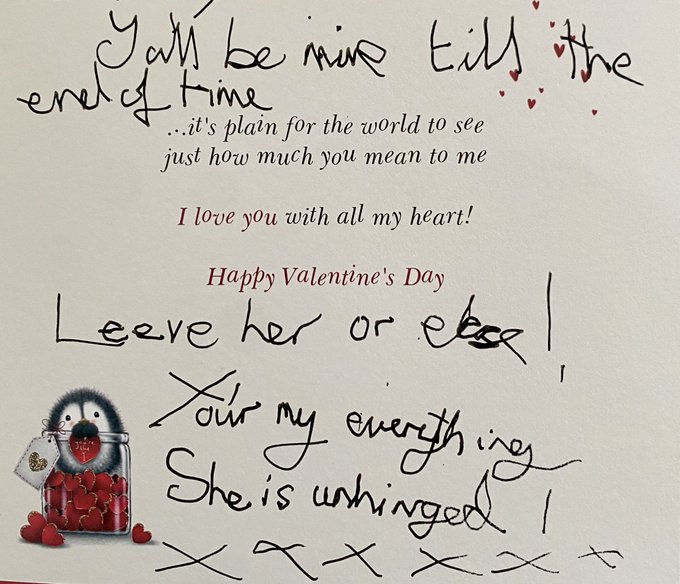 Yall be mine till the
end of time
...it's plain for the world to see
just how much you mean to me
I love you with all my heart!
Happy Valentine's Day
Leeve her or else!
Your my everything
She is unhinged!
X X X X X X